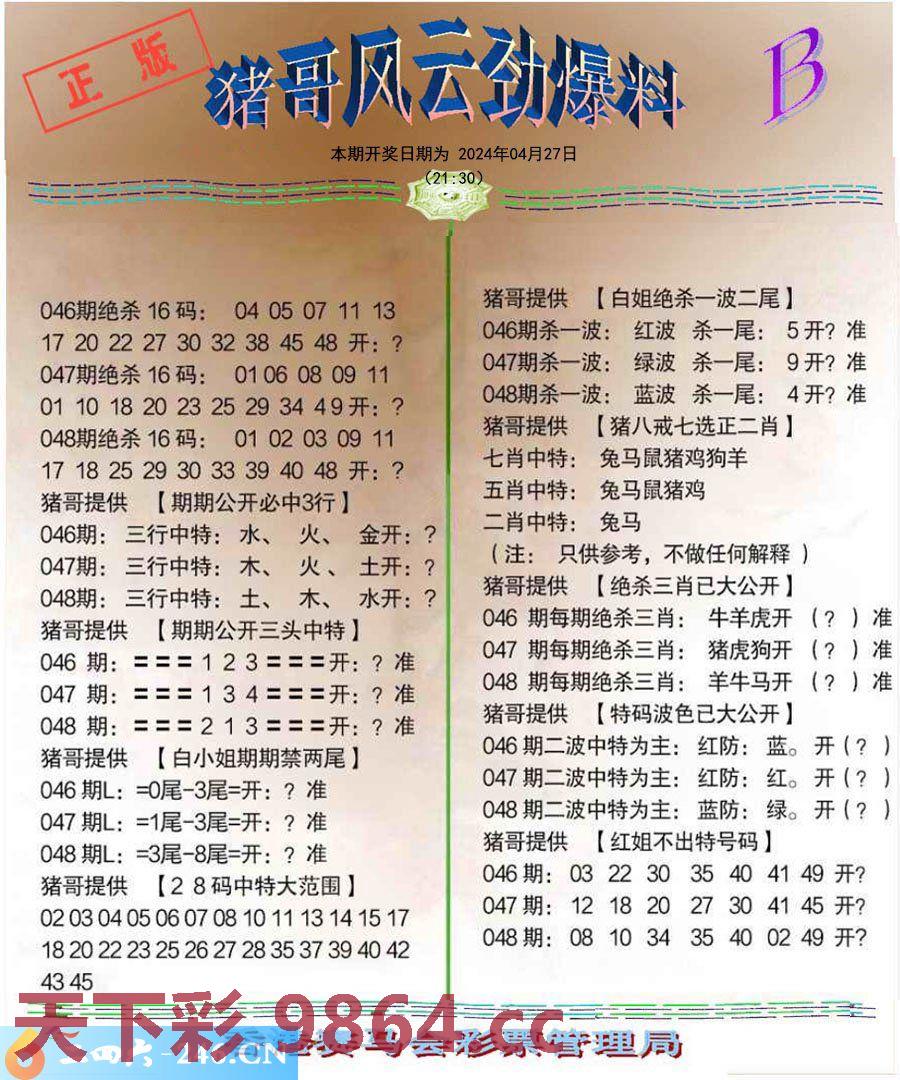 正版
猪哥风云劲爆料
B
本期开奖日期为 2024年04月27日
（21:30）
046期绝杀16码： 04 05 07 11 13
17 20 22 27 30 32 38 45 48 开：?
047期绝杀16码： 01 06 08 09 11
01 10 18 20 23 25 29 34 49开：?
048期绝杀16码： 01 02 03 09 11
17 18 25 29 30 33 39 40 48 开：?
猪哥提供 【期期公开必中3行】
046期：三行中特：水、 火、 金开：?
047期：三行中特：木、 火、 土开：?
048期：三行中特：土、 木、 水开：?
猪哥提供 【期期公开三头中特】
046 期：===1 2 3===开：? 准
047 期：===1 3 4===开：? 准
048 期：===2 1 3===开：? 准
猪哥提供 【白小姐期期禁两尾】
046 期L：=0尾-3尾=开：? 准
047 期L：=1尾-3尾=开：? 准
048 期L：=3尾-8尾=开：? 准
猪哥提供 【28码中特大范围】
02 03 04 05 06 07 08 10 11 13 14 15 17
18 20 22 23 25 26 27 28 35 37 39 40 42
43 45
猪哥提供 【白姐绝杀一波二尾】
046期杀一波： 红波 杀一尾： 5 开? 准
047期杀一波： 绿波 杀一尾： 9 开? 准
048期杀一波： 蓝波 杀一尾： 4 开? 准
猪哥提供 【猪八戒七选正二肖】
七肖中特： 兔马鼠猪鸡狗羊
五肖中特： 兔马鼠猪鸡
二肖中特： 兔马
（注： 只供参考，不做任何解释 ）
猪哥提供 【绝杀三肖已大公开】
046 期每期绝杀三肖： 牛羊虎开 （? ）准
047 期每期绝杀三肖： 猪虎狗开 （? ）准
048 期每期绝杀三肖： 羊牛马开 （? ）准
猪哥提供 【特码波色已大公开】
046 期二波中特为主：红防：蓝。开（? ）
047 期二波中特为主：红防：红。开（? ）
048 期二波中特为主：蓝防：绿。开（? ）
猪哥提供 【红姐不出特号码】
046 期： 03 22 30 35 40 41 49 开?
047 期： 12 18 20 27 30 41 45 开?
048 期： 08 10 34 35 40 02 49 开?
天下彩 9864.cc
二四六-246.CN
马会彩票管理局